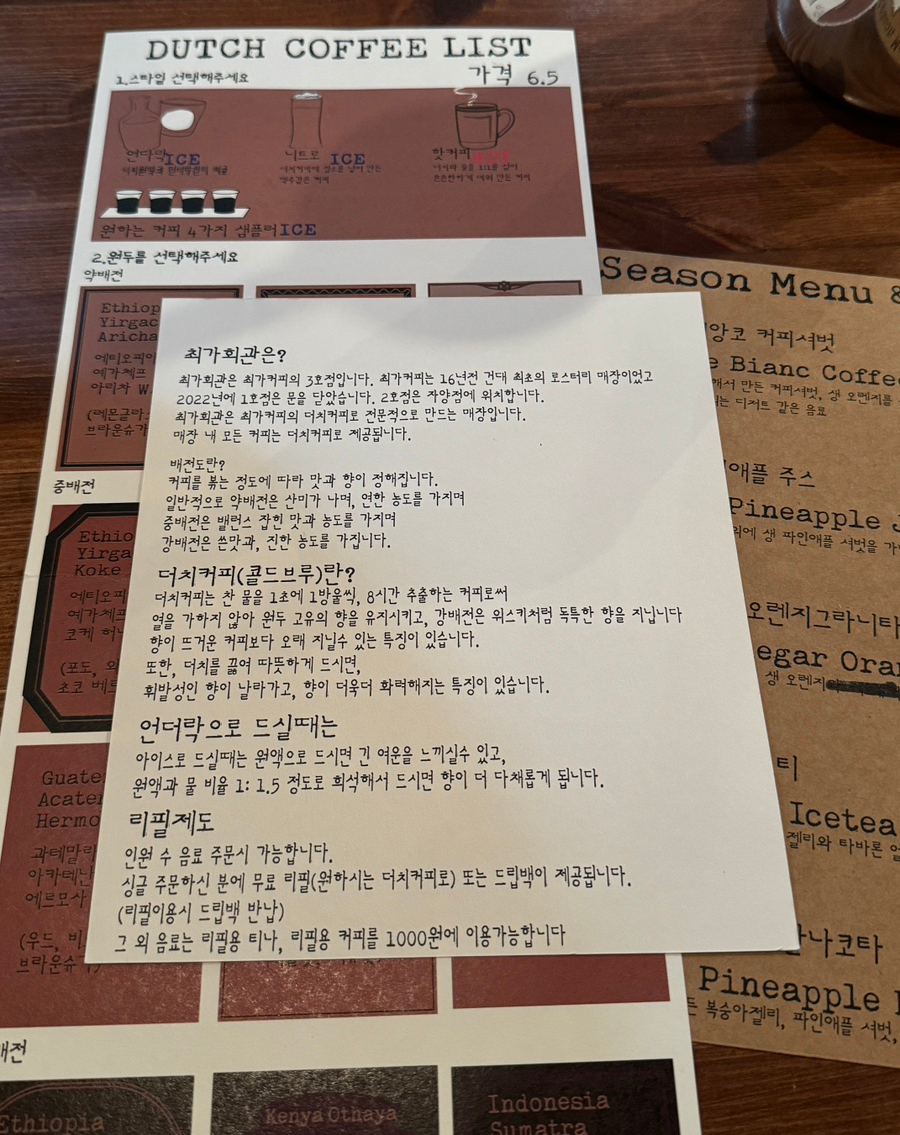 DUTCH COFFEE LIST
1.스타일 선택해주세요
가격 6.5
언더락 ICE
니트로 ICE
핫커피
더치커피에 질소를 넣어 만든
맥주같은 커피
더치와 물을 1:1를 섞어
은은한하게 데워 만든 커피
원하는 커피 4가지 샘플러 ICE
2.원두를 선택해주세요
약배전
에티오피아
예가체프
아리차
중배전
Koke
에티오피
예가체프
코케 허니
(포도,
과테말라
(우드,
배전
Ethiopia
Kenya Othaya
Indonesia
Sumatra
최가회관은?
최가회관은 최가커피의 3호점입니다. 최가커피는 16년전 건대 최초의 로스터리 매장이었고
2022년에 1호점은 문을 닫았습니다. 2호점은 자양점에 위치합니다.
최가회관은 최가커피의 더치커피로 전문적으로 만드는 매장입니다.
매장 내 모든 커피는 더치커피로 제공됩니다.
배전도란?
커피를 볶는 정도에 따라 맛과 향이 정해집니다.
일반적으로 약배전은 산미가 나며, 연한 농도를 가지며
중배전은 밸런스 잡힌 맛과 농도를 가지며
강배전은 쓴맛과, 진한 농도를 가집니다.
더치커피(콜드브루)란?
더치커피는 찬 물을 1초에 1방울씩, 8시간 추출하는 커피로써
열을 가하지 않아 원두 고유의 향을 유지시키고, 강배전은 위스키처럼 독특한 향을 지닙니다
향이 뜨거운 커피보다 오래 지닐수 있는 특징이 있습니다.
또한, 더치를 끓여 따뜻하게 드시면,
휘발성인 향이 날라가고, 향이 더욱더 화력해지는 특징이 있습니다.
언더락으로 드실때는
아이스로 드실때는 원액으로 드시면 긴 여운을 느끼실수 있고,
원액과 물 비율 1: 1.5 정도로 희석해서 드시면 향이 더 다채롭게 됩니다.
리필제도
인원 수 음료 주문시 가능합니다.
싱글 주문하신 분에 무료 리필(원하시는 더치커피로) 또는 드립백이 제공됩니다.
(리필이용시 드립백 반납)
그 외 음료는 리필용 티나, 리필용 커피를 1000원에 이용가능합니다
Season Menu &
앙코 커피셔벗
Bianc Coffee
해서 만든 커피셔벗, 생 오렌지를
는 디저트 같은 음료
애플 주스
Pineapple J
위에 생 파인애플 셔벗을
오렌지그라니타
egar Oran
생 오렌지
티
Icetea
젤리와 타바론
나코타
Pineapple
복숭아젤리, 파인애플 셔벗,